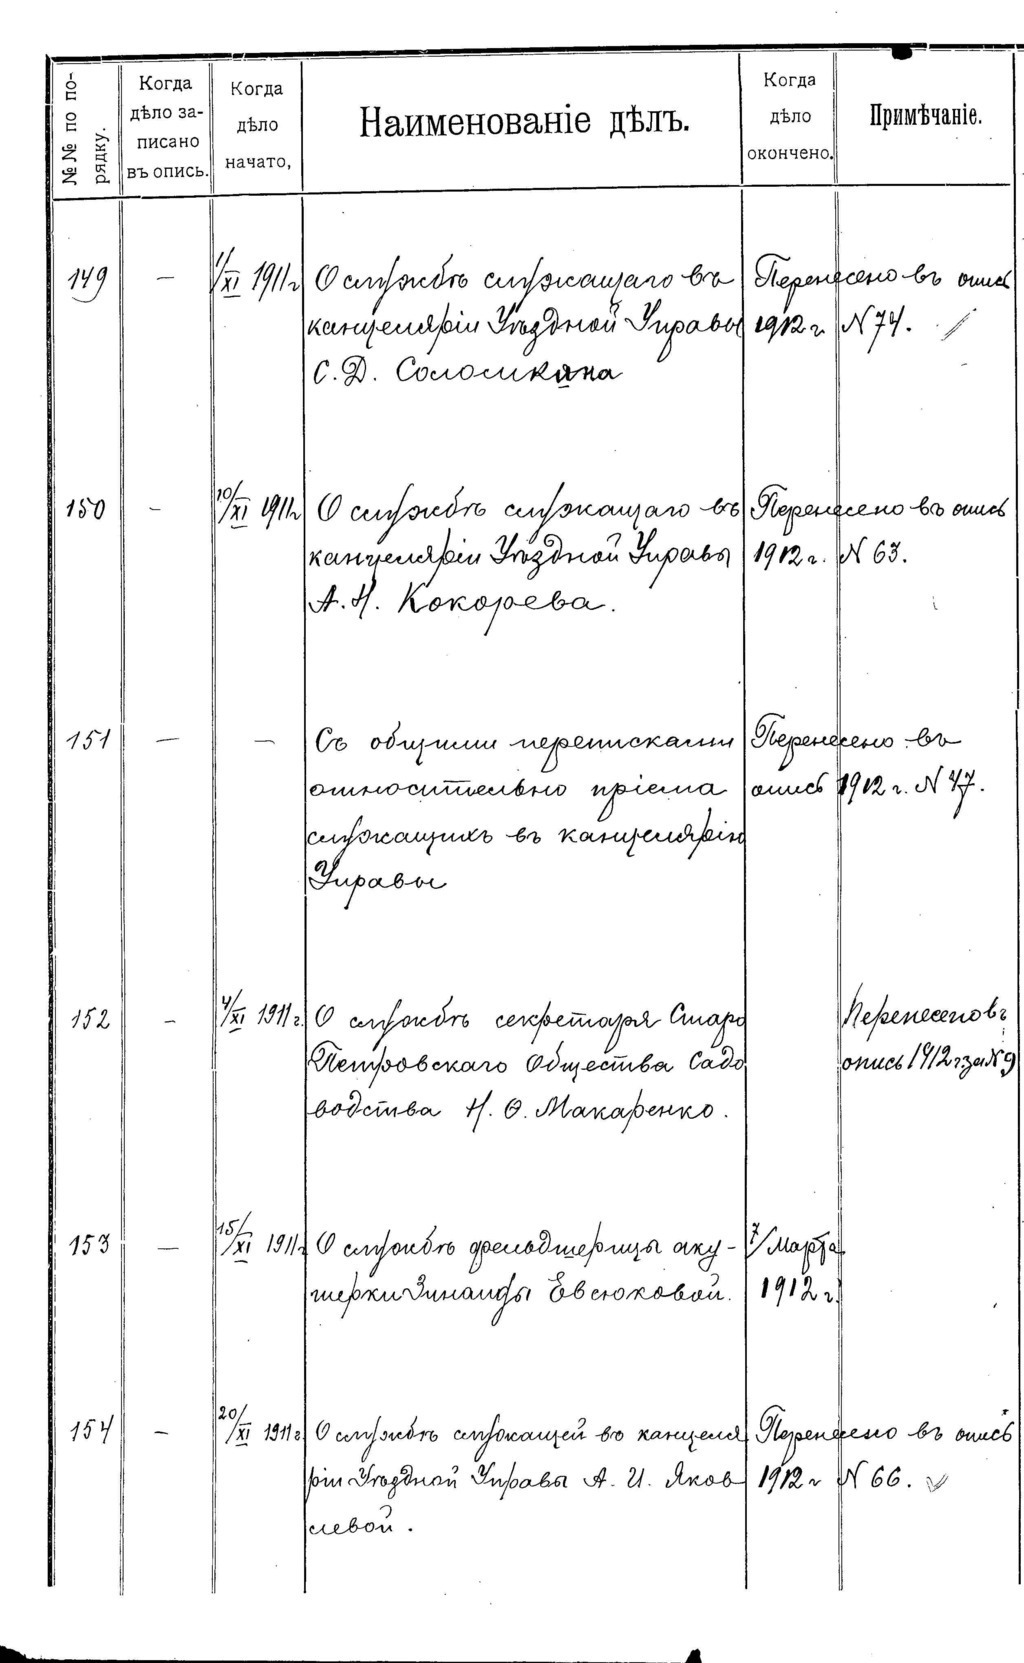 №№ по по-
рядку.
Когда
дѣло за-
писано
въ опись.
Когда
дѣло
начато,
Наименованіе дѣлъ.
Когда
дѣло
окончено.
Примѣчаніе.
149 — 1/XI 1911г О службѣ служащаго въ Перенесено въ опись
канцеляріи Уѣздной Управы 1912 г. N 74.
С. Д. Солосикяна
150 — 10/XI 1911г О службѣ служащаго въ Перенесено въ опись
канцеляріи Уѣздной Управы 1912 г. N 63.
А. Н. Кокорева.
151 — — Съ общими переписками Перенесено въ
относительно пріема опись 1912 г. N 47.
служащихъ въ канцелярію
Управы
152 — 4/XI 1911 г. О службѣ секретаря Старо Перенесено въ
Петровскаго Общества Садо опись 1912 г за N 9
водства Н. Ѳ. Макаренко.
153 — 15/XI 1911г О службѣ фельдшерицы аку- 7/Марта
шерки Зинаиды Евсюковой. 1912 г.
154 — 20/XI 1911г О службѣ служащей въ канцеля Перенесено въ опись
ріи Уѣздной Управы А. И. Яков 1912 г N 66.
левой.